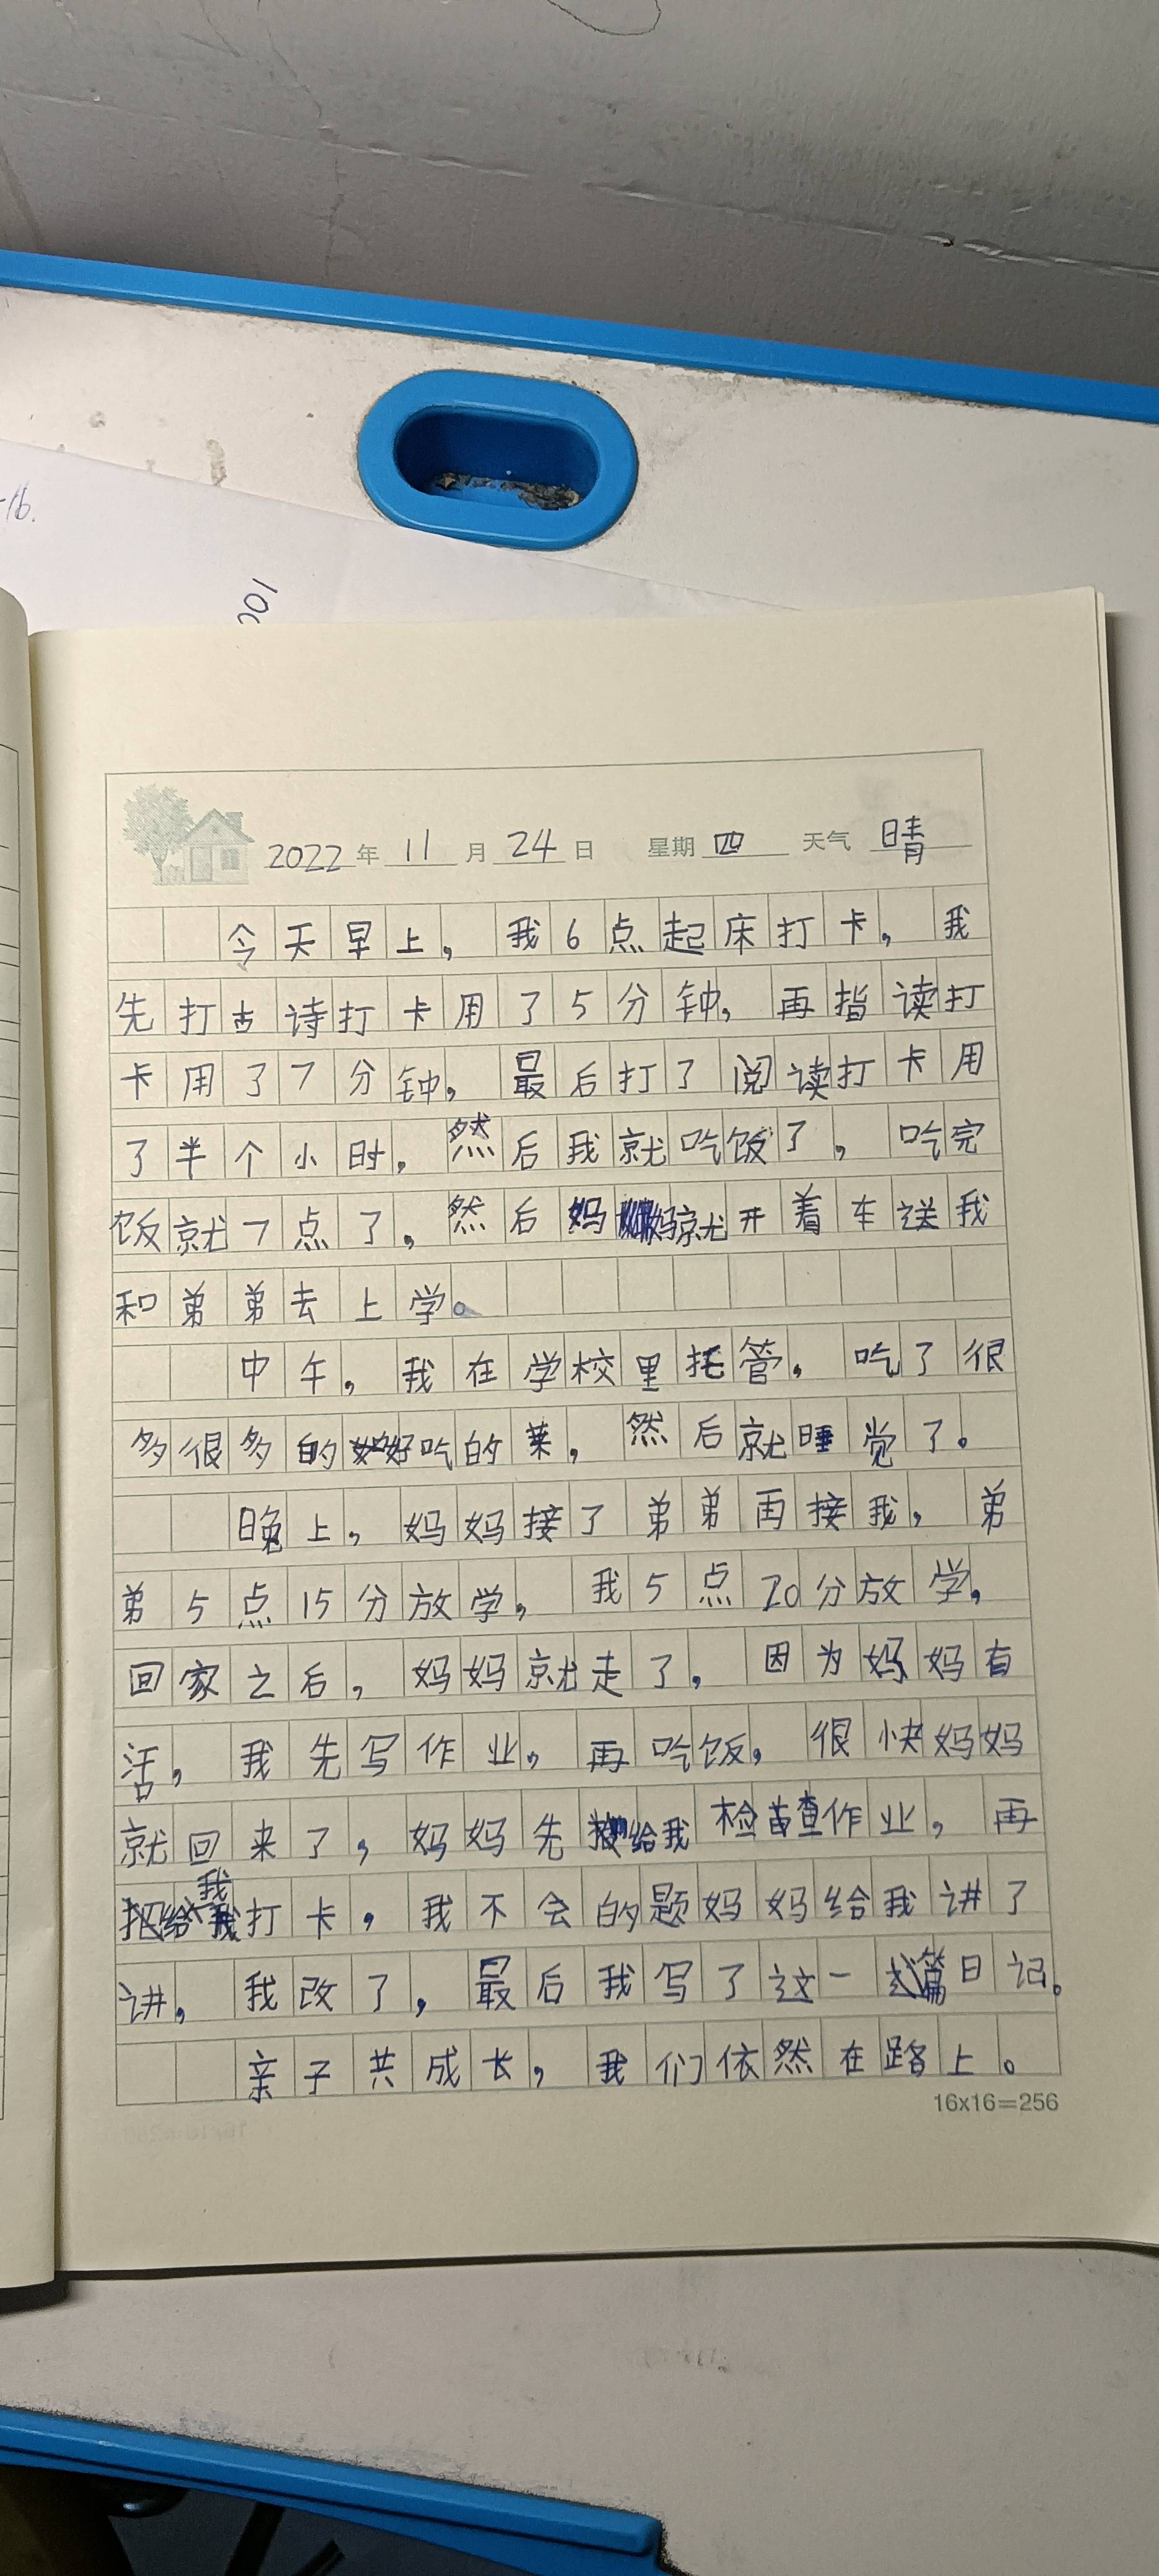 -16.
100
2022年11月24日 星期四 天气 晴
今天早上，我6点起床打卡，我
先打古诗打卡用了5分钟，再指读打
卡用了7分钟，最后打了阅读打卡用
了半个小时，然后我就吃饭了，吃完
饭就7点了，然后妈妈就开着车送我
和弟弟去上学。
中午，我在学校里托管，吃了很
多很多的好吃的菜，然后就睡觉了。
晚上，妈妈接了弟弟再接我，弟
弟5点15分放学，我5点20分放学，
回家之后，妈妈就走了，因为妈妈有
活，我先写作业，再吃饭，很快妈妈
就回来了，妈妈先给我检查作业，再
给我打卡，我不会的题妈妈给我讲了
讲，我改了，最后我写了这一篇日记。
亲子共成长，我们依然在路上。
16x16=256